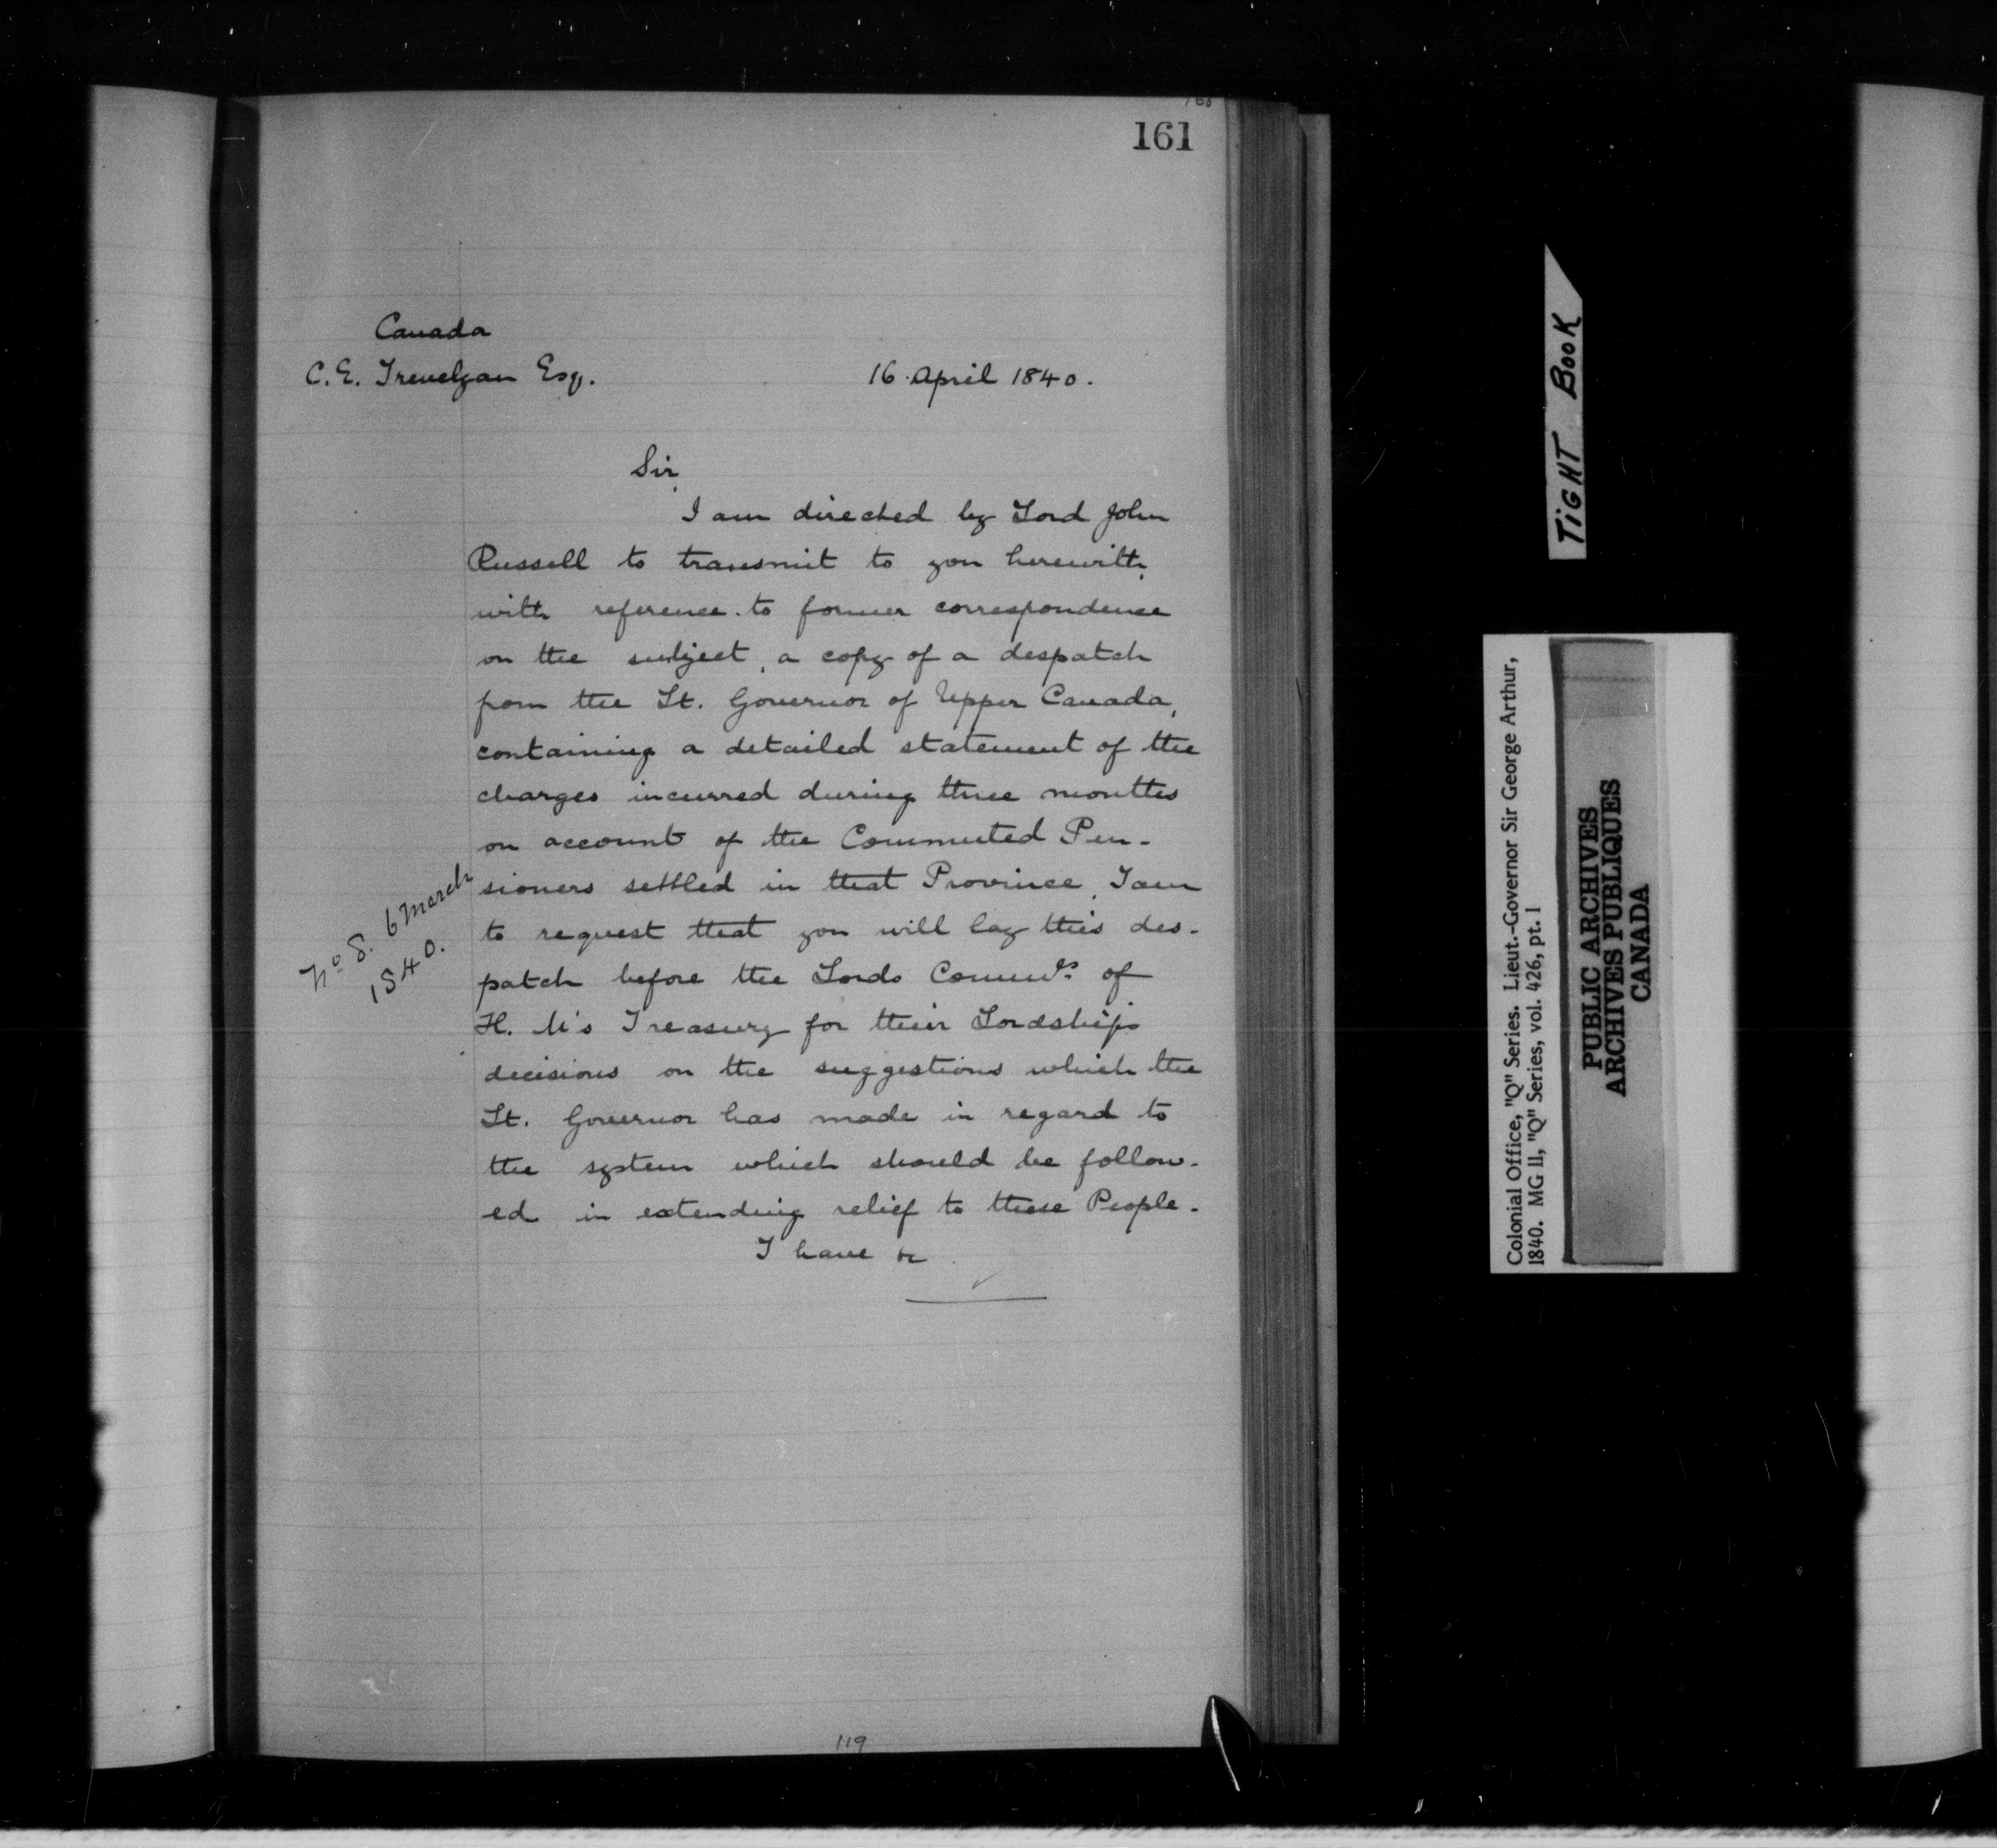 161
Canada
C. E. Trevelyan Esq. 16 April 1840.
Sir,
I am directed by Lord John
Russell to transmit to you herewith,
with reference to former correspondence
on the subject, a copy of a despatch
from the Lt. Governor of Upper Canada,
containing a detailed statement of the
charges incurred during three months
on account of the Commuted Pen-
sioners settled in that Province, I am
to request that you will lay this des-
patch before the Lords Commrs. of
H. M's Treasury for their Lordships
decisions on the suggestions which the
Lt. Governor has made in regard to
the system which should be follow-
ed in extending relief to these People.
I have &c
No 8. 6 March
1840.
119
TIGHT BOOK
Colonial Office, "Q" Series. Lieut.-Governor Sir George Arthur,
1840. MG 11, "Q" Series, vol. 426, pt. 1
PUBLIC ARCHIVES
ARCHIVES PUBLIQUES
CANADA